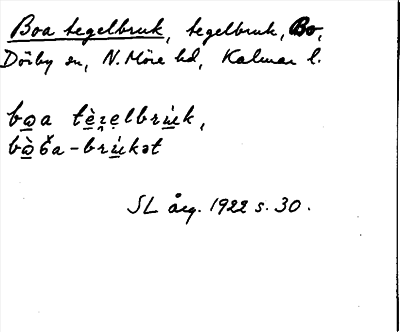 Boa tegelbruk, tegelbruk, Bo,
Dörby sn, N. Möre hd, Kalmar l.
boa tèʒelbrúk,
bòƃa-brúkət
SL årg. 1922 s. 30.